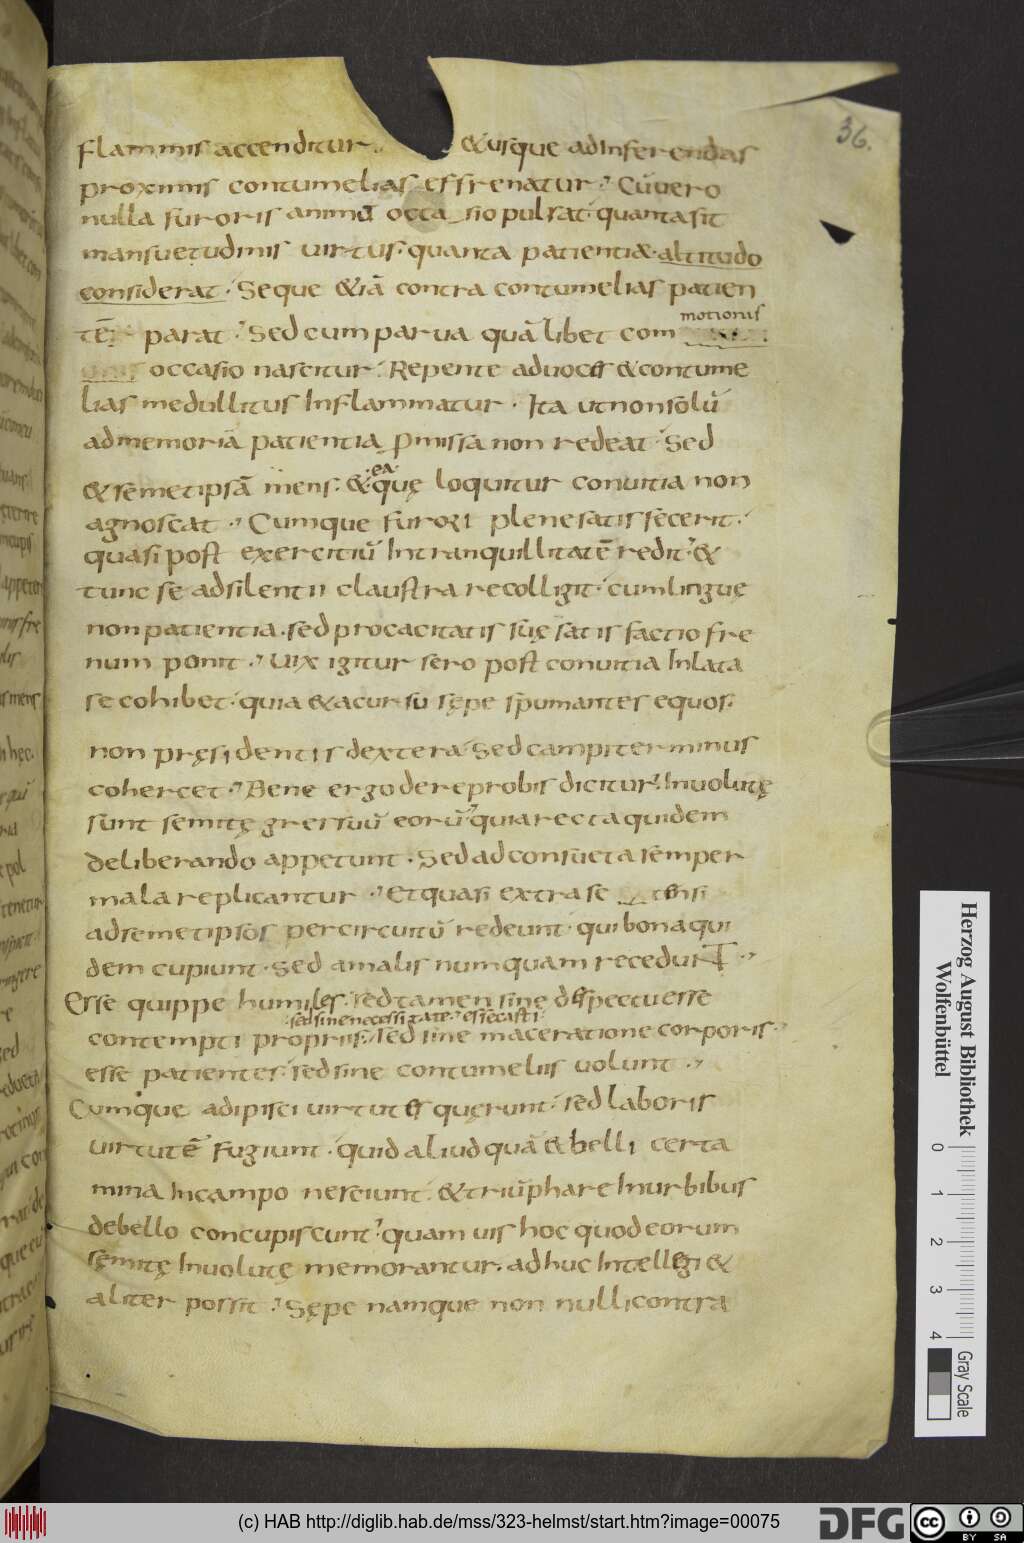 36.
flammis accenditur. &usque adinferendas
proximis contumelias effrenatur; Cūvero
nulla furoris animū occasio pulsat. quanta sit
mansuetudinis virtus. quanta patientiæ. altitudo
considerat. Seque &iā contra contumelias patien
tē parat; Sed cum parva quālibet com motionis
occasio nascitur. Repente advoces &contume
lias medullitus Inflammatur. Ita utnonsolū
admemoriā patientia ꝑmissa non redeat. Sed
&semetipsā mens. & ea quę loquitur convitia non
agnoscat; Cumque furori plene satisfecerit.
quasi post exercitiū Intranquillitatē redit. &
tunc se adsilentii claustra recolligit. cum linguę
non patientia. sed procacitatis suę satisfactio fre
num ponit; Vix igitur sero post convitia Inlata
se cohibet. quia &acursu sępe spumantes equos.
non pręsidentis dextera. Sed campi terminus
cohercet; Bene ergo de reprobis dicitur; Involutę
sunt semitę gressuū eorū; quia recta quidem
deliberando appetunt. Sed ad consueta semper
mala replicantur; Et quasi extra se tensi
adsemetipsos percircuitū redeunt. qui bona qui
dem cupiunt. Sed amalis numquam recedunt;
Esse quippe humiles. sed tamen sine despectu esse
sed sine necessitate; esse casti
contempti propriis. sed sine maceratione corporis.
esse patientes. sed sine contumeliis volunt;
Cumque adipisci virtutes quęrunt. sed laboris
virtutē fugiunt. quid aliud quā & belli certa
mina Incampo nesciunt. &triūphare Inurbibus
debello concupiscunt; quam vis hoc quod eorum
sęmitę Involutę memorantur. adhuc Intellegi &
aliter possit; Sępe namque non nulli contra
Herzog August Bibliothek
Wolfenbüttel
0 1 2 3 4
Gray Scale
(c) HAB http://diglib.hab.de/mss/323-helmst/start.htm?image=00075
DFG
cc BY SA